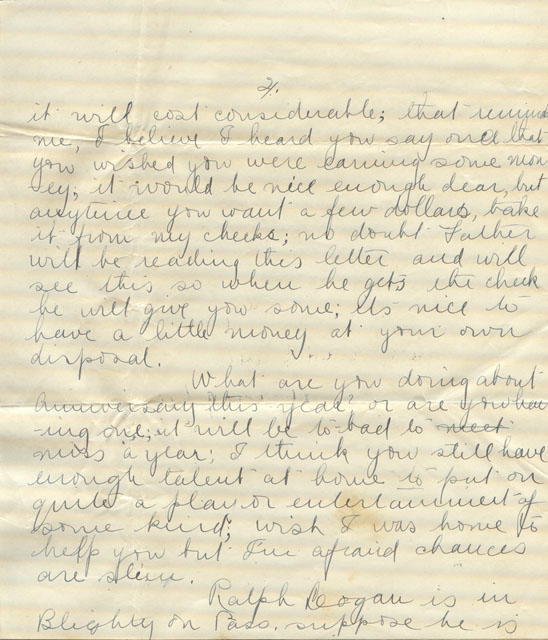 2/.
it will cost considerable; that reminds
me, I believe I heard you say once that
you wished you were earning some mon
ey; it would be nice enough dear, but
anytime you want a few dollars, take
it from my checks; no doubt Father
will be reading this letter and will
see this so when he gets the check
he will give you some; Its nice to
have a little money at your own
disposal.
What are you doing about
Anniversary this year? or are you hav
-ing one; it will be to bad to meet
miss a year; I think you still have
enough talent at home to put on
quite a play or entertainment of
some kind; wish I was home to
help you but I'm afraid chances
are slim.
Ralph is in
Blighty on Pass. suppose he is